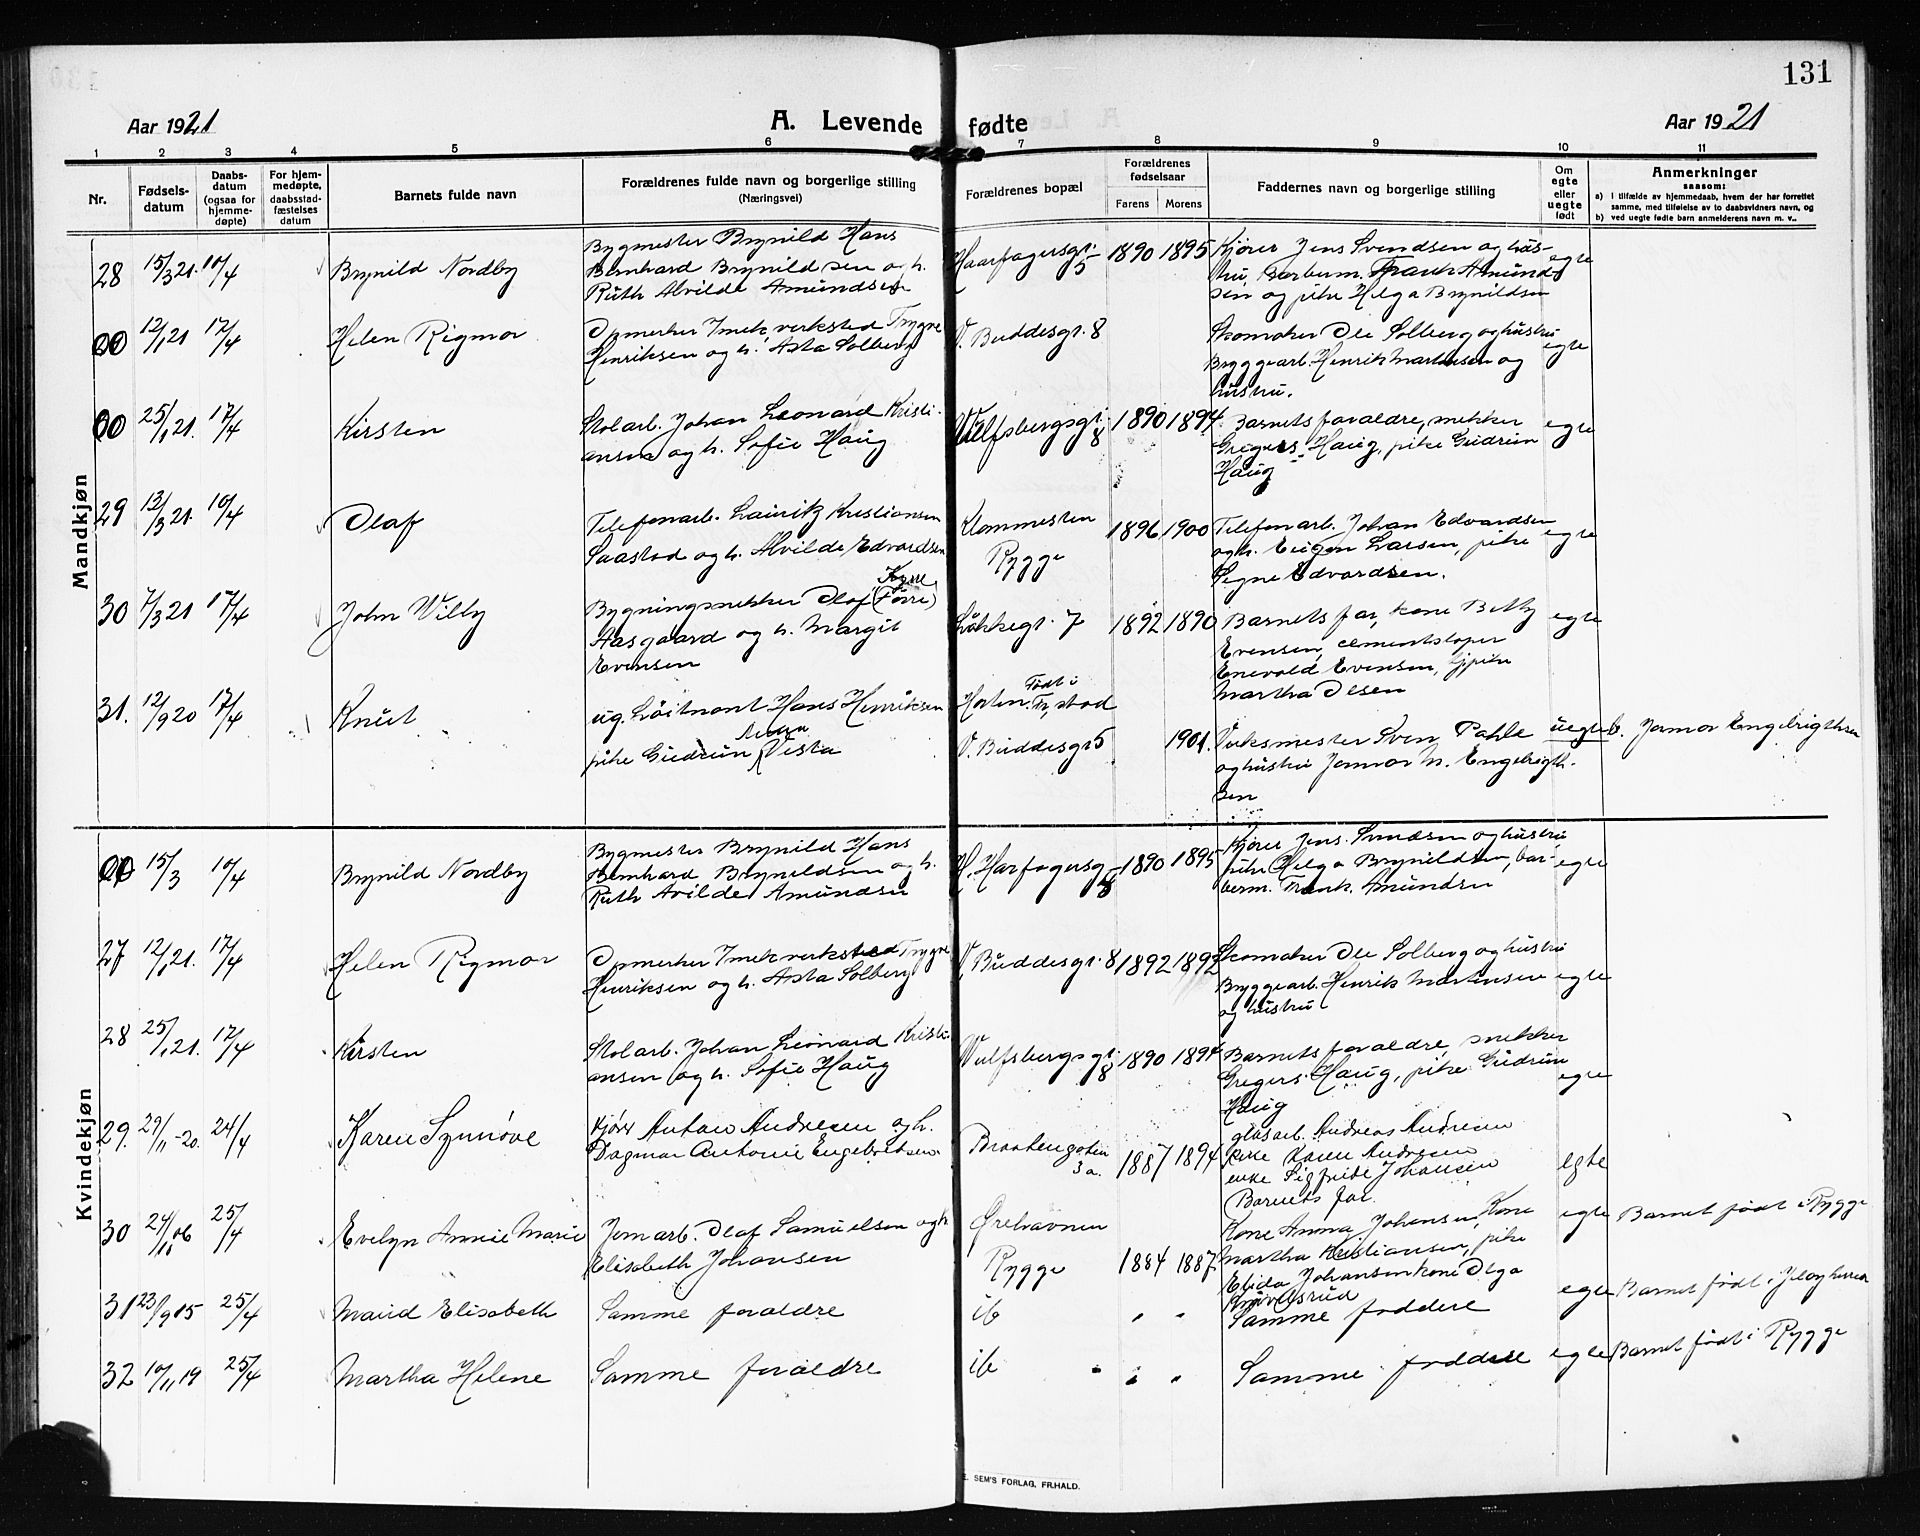 131
Aar 1921
A. Levende fødte
Aar 1921
1 2 3 4 5 6 7 8 9 10 11
Nr.
Fødsels-
datum
Daabs-
datum
(ogsaa for
hjemme-
døpte)
For hjem-
medøpte,
daabsstad-
fæstelses
datum
Barnets fulde navn
Forældrenes fulde navn og borgerlige stilling
(Næringsvei)
Forældrenes bopæl
Forældrenes
fødselsaar
Farens
Morens
Faddernes navn og borgerlige stilling
Om
egte
eller
uegte
født
Anmerkninger
saasom:
a) i tilfælde av hjemmedaab, hvem der har forrettet
samme, med tilføielse av to daabsvidners navn, og
b) ved uegte fødte barn anmelderens navn m. v..
Mandkjøn
28 15/3 21. 10/4 Brynild Nordby
Bygmester Brynild Hans
Bernhard Brynildsen og h.
Ruth Alvilde Amundsen
Haarfagersgt. 5 1890 1895
Kjører Jens Svendsen og hus-
tru, Barberm. Frank Amund-
sen og pike Helga Brynildsen
egte
12/1 21 17/4 Helen Rigmor
Opmerker I mek verksted Trygve
Henriksen og h. Asta Solberg
V. Buddesgt. 8
Skomaker Ole Solberg og hustru
Bryggearb. Henrik Martinsen og
hustru.
egte
25/1 21. 17/4 Kirsten
Stolarb. Johan Leonard Kristi-
ansen og h. Sofie Haug
Wulfsbergsgt. 8 1890 1894
Barnets forældre, snekker
Gregers Haug, pike Gudrun
Haug
egte
29 13/3 21. 10/4 Olaf
Telefonarb. Lauritz Kristiansen
Saastad og h. Alvilde Edvardsen
Klommesten
Rygge
1896 1900
Telefonarb. Johan Edvardsen
og h. Eugen Larsen, pike
Signe Edvardsen.
egte
30 7/3 21 17/4 John Willy
Bygningssnekker Olaf (Tørre)
Aasgaard og h. Margit
Evensen
Løkkegt. 7 1892 1890
Barnets far, kone Betty
Evensen, cementstøper
Enevold Evensen, pike
Martha Olsen
egte
31. 12/9 20 17/4 Knut
ug. Løitnant Hans Henriksen
pike Gudrun Vesta
Horten. Født i Fr.stad
V. Buddesgt 5
1901.
Verksmester Sven Pahle
og hustru Jenmor M. Engebrigth-
sen
uegte
b. Jenmor Engebrigthsen
Kvindekjøn
15/3 10/4 Brynild Nordby
Bygmester Brynild Hans
Bernhard Bryneldsen og h.
Ruth Avilde Amundsen
H. Harfagersg. 1890 1895
Kjører Jens. Svendsen og hustru
pike Helga Brynildsen, bar-
berm. Frank. Amundsen
egte
27 12/1 21. 17/4 Helen Rigmor
Opmerker I mek verksted Trygve
Henriksen og h. Asta Solberg
V. Buddesgt. 8 1892 1892
Skomaker Ole Solberg og hustru
Bryggearb. Henrik Martensen
og hustru
egte
28 25/1 21. 17/4 Kirsten
Stolarb. Johan Leonard Kristi-
ansen og h. Sofie Haug
Wulfsbergsgt. 8 1890 1894
Barnets forældre, snekker
Gregers Haug, pike Gudrun
Haug
egte
29. 29/11-20. 24/4 Karen Synnøve
Kjører Anton Andresen og h.
Dagmar Antonie Engebretsen.
Braatengaten
3a.
1887 1894
glasarb. Andreas Andresen
Karen Andresen
enke Sigfride Johansen
Barnets far.
egte
30 24/11 06 25/4 Evelyn Annie Marie
Jernarb. Olaf Samuelsen og h
Elisabeth Johansen
Ørehavnen
Rygge
1884 1887
Kone Anna Johansen, Kone
Martha Kristiansen, pike
Elida Johansen kone Olga
egte
Barnet født i Rygge
31 23/9 15 25/4 Maud Elisabeth
Samme foraldre
ib " "
Samme faddere
egte
Barnet født i Jeløy herred
32 10/11 19 25/4 Martha Helene
Samme foraldre
ib " "
Samme faddere
egte
Barnet født i Rygge
E. SEM'S FORLAG, FR.HALD.